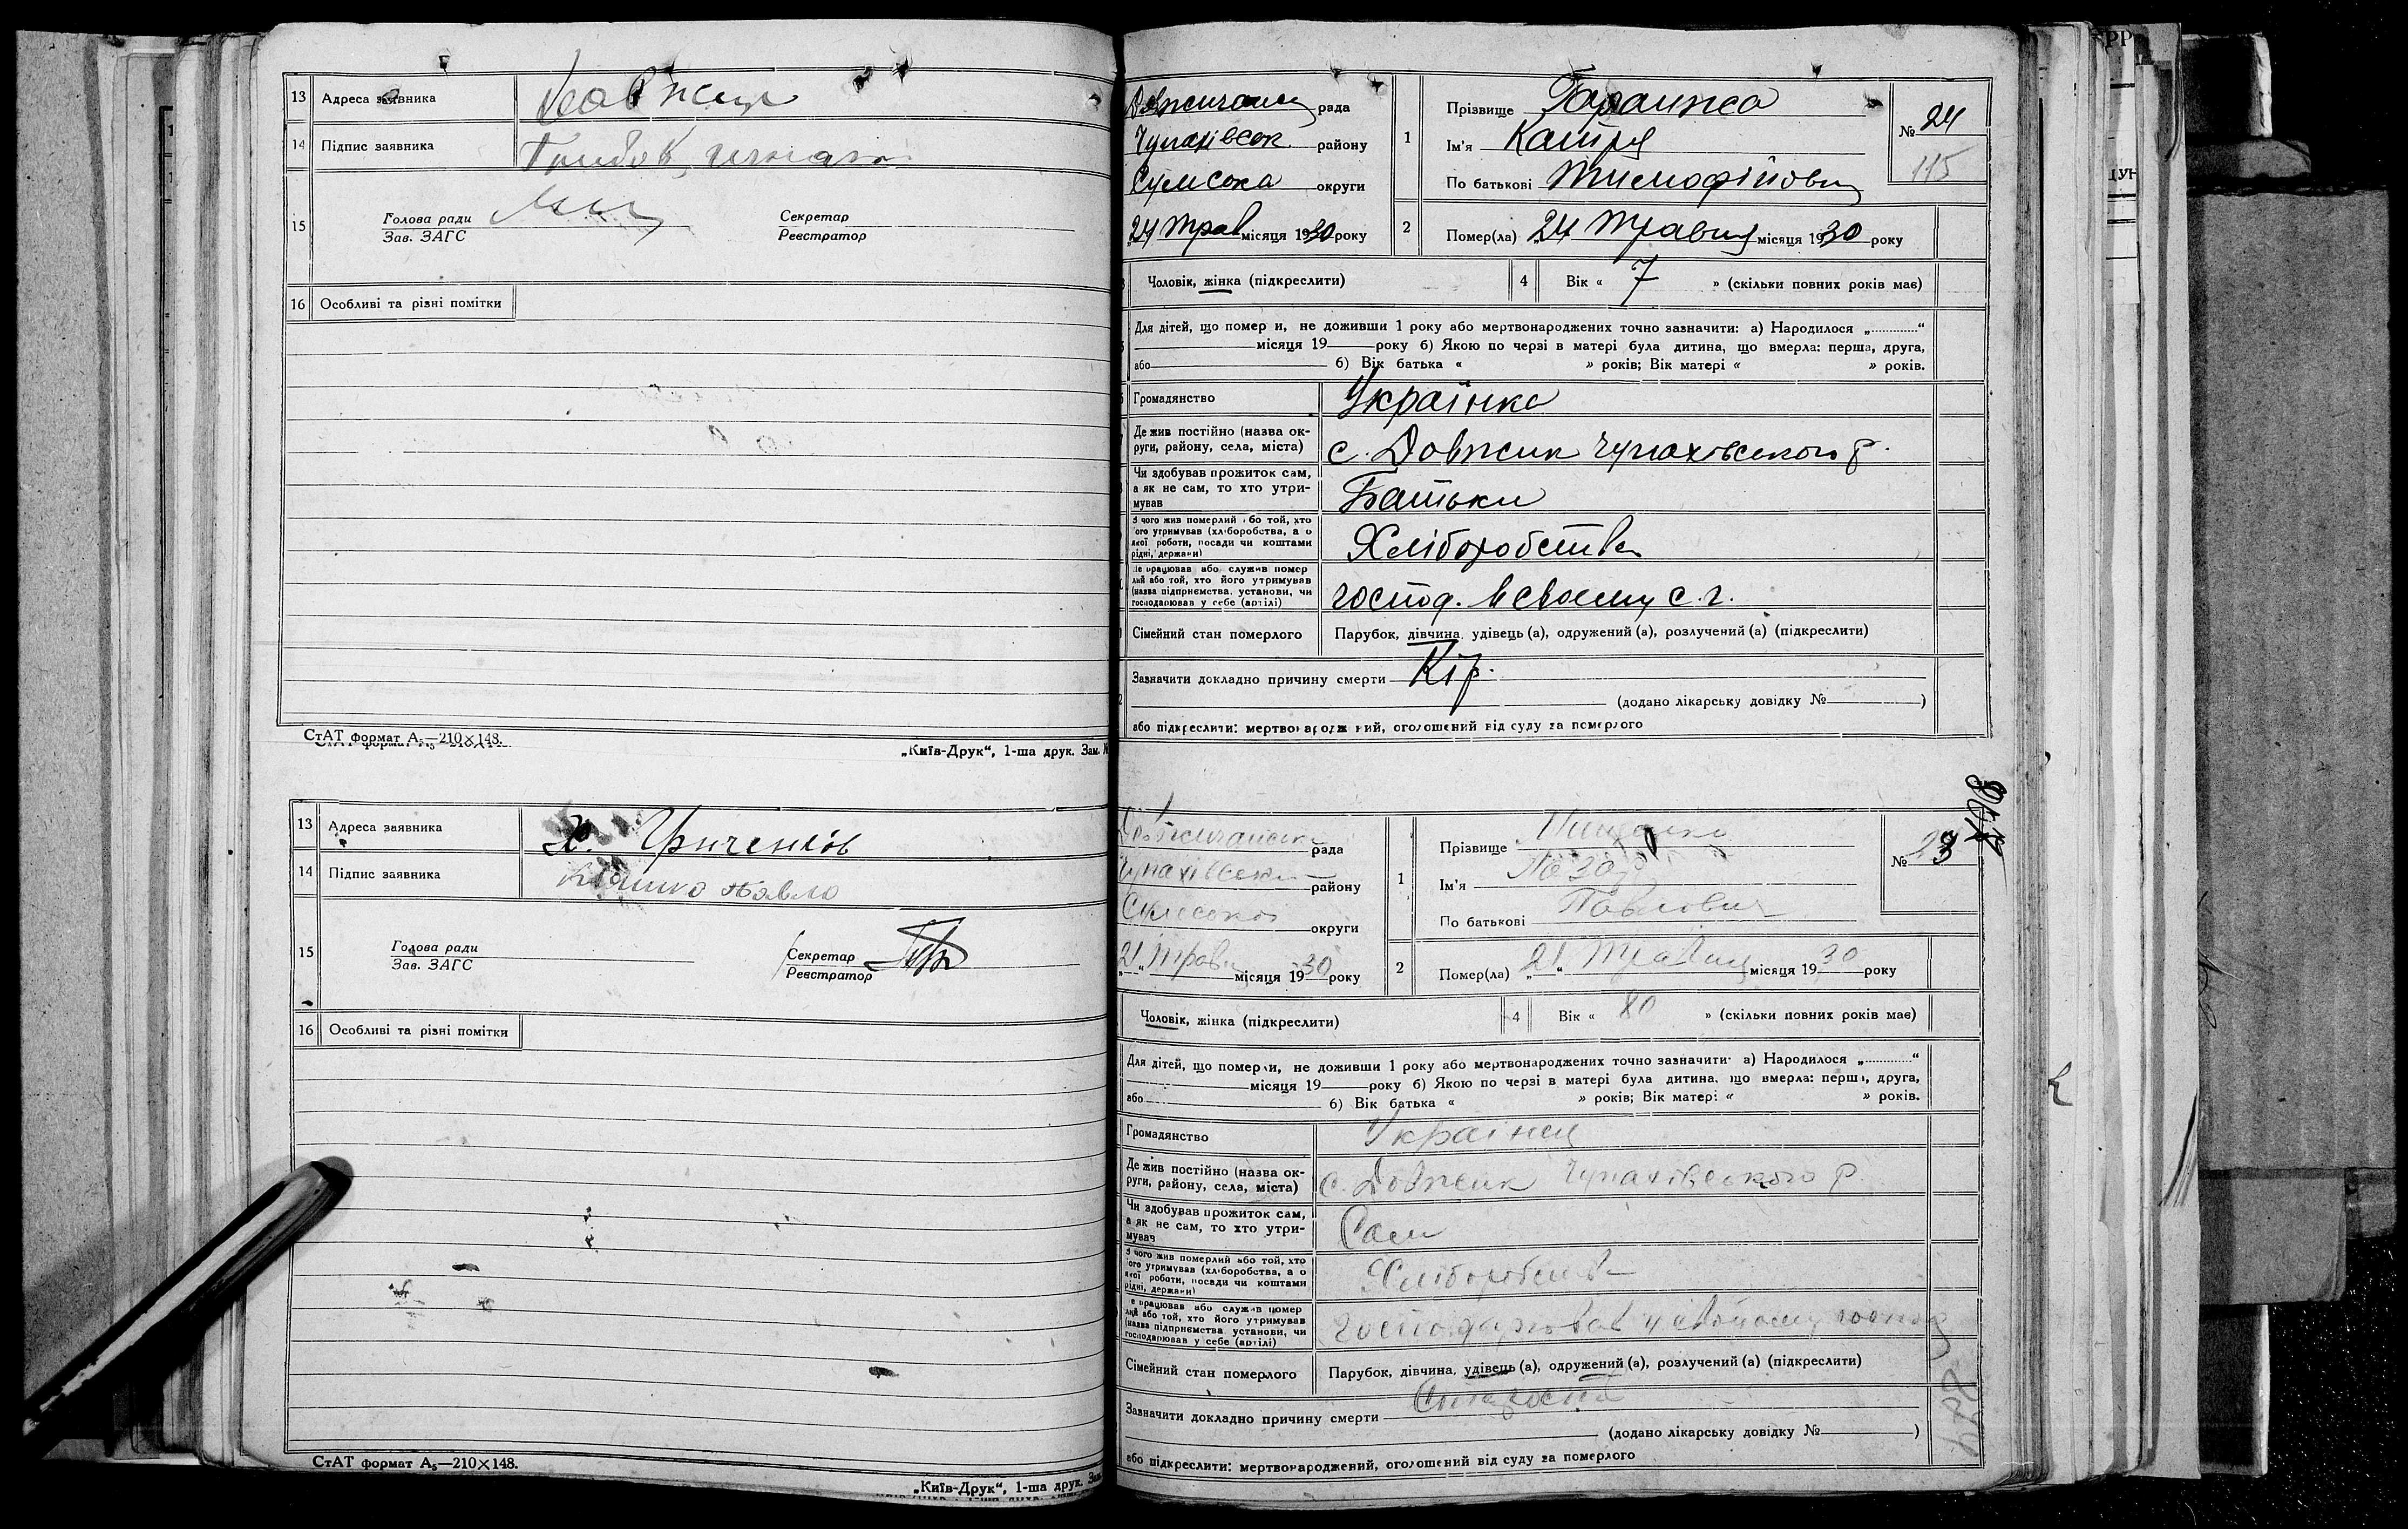 13 Адреса заявника
14 Підпис заявника
15 Голова ради
Зав. ЗАГС
Секретар
Реєстратор
16 Особливі та різні помітки
СтАТ формат А₅—210×148.
„Київ-Друк“, 1-ша друк. Зам. №
13 Адреса заявника х. Гриченків
14 Підпис заявника Павло
15 Голова ради
Зав. ЗАГС
Секретар
Реєстратор
16 Особливі та різні помітки
СтАТ формат А₅—210×148.
„Київ-Друк“, 1-ша друк. Зам.
рада
Чупахівськ. району
Сумська округи
24 Трав місяця 1930 року
1 Прізвище
Ім'я Катря
По батькові Тимофіївн
№ 24
115
2 Помер(ла) „24 Травня місяця 1930 року
Чоловік, жінка (підкреслити)
4 Вік « 7 » (скільки повних років має)
Для дітей, що помер и, не доживши 1 року або мертвонароджених точно зазначити: а) Народилося „............“
місяця 19 року б) Якою по черзі в матері була дитина, що вмерла: перша, друга,
або б) Вік батька « » років; Вік матері « » років.
Громадянство Українка
Де жив постійно (назва ок-
руги, району, села, міста) с. Довжик Чупахівського р.
Чи здобував прожиток сам,
а як не сам, то хто утри-
мував Батьки
з чого жив померлий або той, хто
його утримував (хліборобства, а о
якої роботи, посади чи коштами
рідні, держави) Хліборобства
де працював або служив помер
лий або той, хто його утримував
(назва підприємства, установи, чи
господарював у себе (артілі) господ. в своєму с. г.
Сімейний стан померлого Парубок, дівчина, удівець (а), одружений (а), розлучений (а) (підкреслити)
Зазначити докладно причину смерти Кір.
(додано лікарську довідку № )
або підкреслити: мертвонароджений, оголошений від суду за померлого
рада
району
округи
21 Травн місяця 1930 року
1 Прізвище
Ім'я
По батькові Павлович
№ 23
2 Помер(ла) „21“ Травня місяця 1930 року
Чоловік, жінка (підкреслити)
4 Вік « 80 » (скільки повних років має)
Для дітей, що померли, не доживши 1 року або мертвонароджених точно зазначити: а) Народилося „............“
місяця 19 року б) Якою по черзі в матері була дитина, що вмерла: перша, друга,
або б) Вік батька « » років; Вік матері « » років.
Громадянство Українец
Де жив постійно (назва ок-
руги, району, села, міста) с. Довжик Чупахівського р
Чи здобував прожиток сам,
а як не сам, то хто утри-
мував Сам
з чого жив померлий або той, хто
його утримував (хліборобства, а о
якої роботи, посади чи коштами
рідні, держави) Хліборобства
де працював або служив помер
лий або той, хто його утримував
(назва підприємства, установи, чи
господарював у себе (артілі) господарював у своєму господ
Сімейний стан померлого Парубок, дівчина, удівець (а), одружений (а), розлучений (а) (підкреслити)
Зазначити докладно причину смерти Старость
(додано лікарську довідку № )
або підкреслити: мертвонароджений, оголошений від суду за померлого